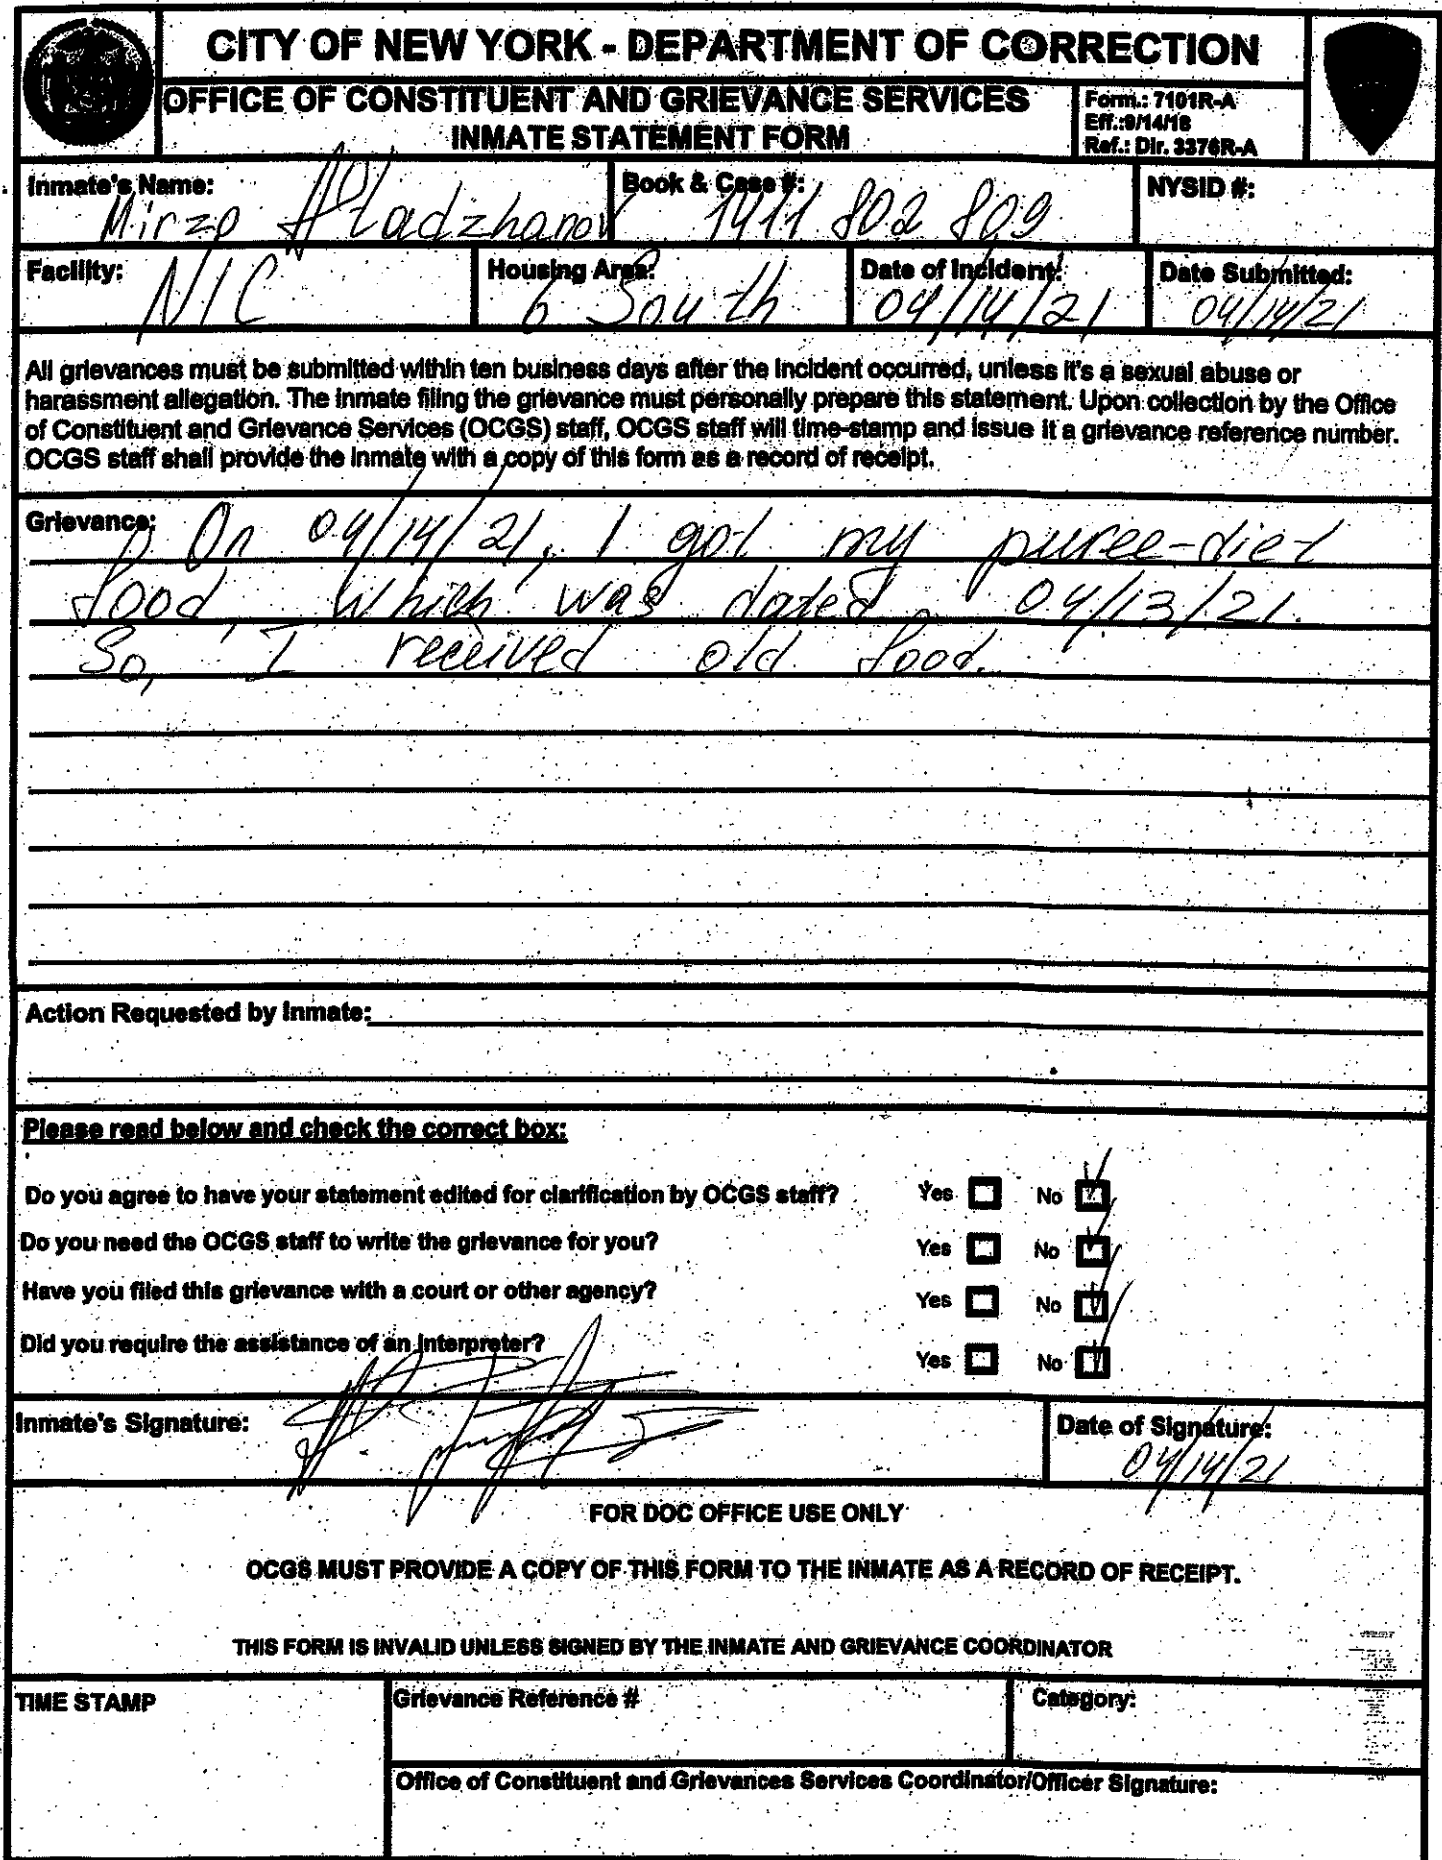 CITY OF NEW YORK - DEPARTMENT OF CORRECTION
OFFICE OF CONSTITUENT AND GRIEVANCE SERVICES
INMATE STATEMENT FORM
Form.: 7101R-A
Eff.:9/14/18
Ref.: Dir. 3376R-A
Inmate's Name: Mirzo Atadzhanov
Book & Case #: 1411 802 809
NYSID #:
Facility: NIC
Housing Area: 6 South
Date of Incident: 04/14/21
Date Submitted: 04/14/21
All grievances must be submitted within ten business days after the incident occurred, unless it's a sexual abuse or
harassment allegation. The inmate filing the grievance must personally prepare this statement. Upon collection by the Office
of Constituent and Grievance Services (OCGS) staff, OCGS staff will time-stamp and issue it a grievance reference number.
OCGS staff shall provide the inmate with a copy of this form as a record of receipt.
Grievance: On 04/14/21, I got my puree-diet
food, which was dated 04/13/21.
So, I received old food.
Action Requested by Inmate:
Please read below and check the correct box:
Do you agree to have your statement edited for clarification by OCGS staff? Yes No
Do you need the OCGS staff to write the grievance for you? Yes No
Have you filed this grievance with a court or other agency? Yes No
Did you require the assistance of an interpreter? Yes No
Inmate's Signature:
Date of Signature: 04/14/21
FOR DOC OFFICE USE ONLY
OCGS MUST PROVIDE A COPY OF THIS FORM TO THE INMATE AS A RECORD OF RECEIPT.
THIS FORM IS INVALID UNLESS SIGNED BY THE INMATE AND GRIEVANCE COORDINATOR
TIME STAMP
Grievance Reference #
Category:
Office of Constituent and Grievances Services Coordinator/Officer Signature: